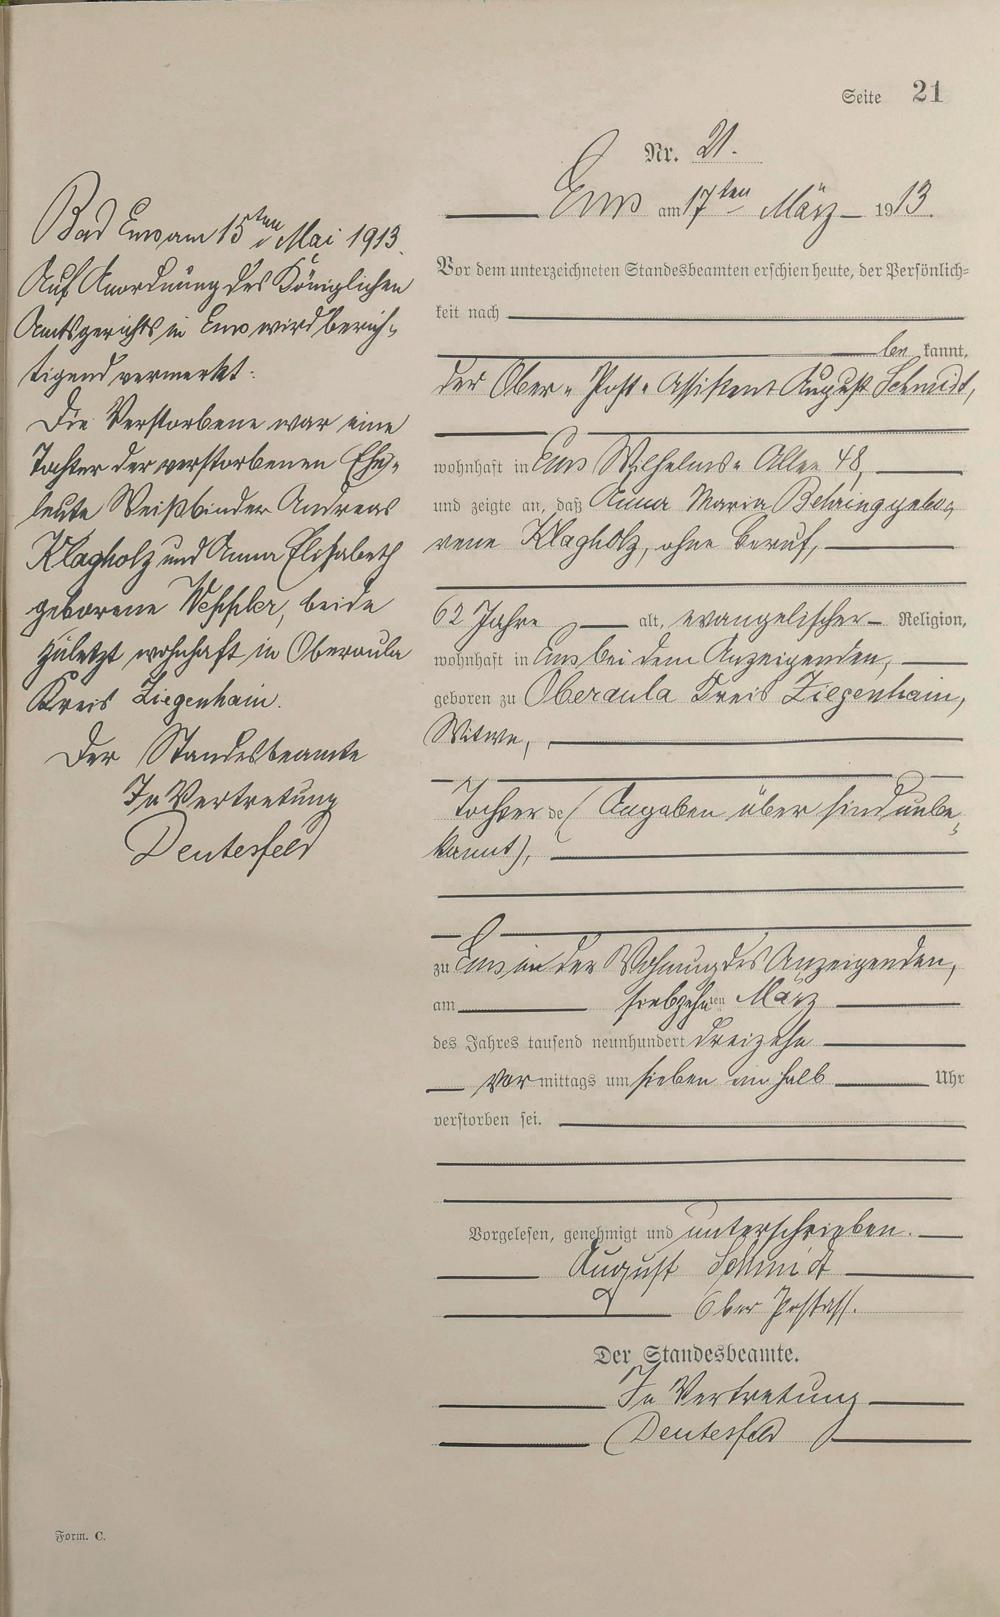 Seite 21
Nr. 21.
Ems am 17ten März 1913.
Vor dem unterzeichneten Standesbeamten erschien heute, der Persönlich-
keit nach
be kannt,
der Ober-Post-Assistent August Schmidt,
wohnhaft in Ems Wilhelms-Allee 48,
und zeigte an, daß Anna Maria Behring gebo-
rene Klagholz, ohne Beruf,
62 Jahre alt, evangelischer Religion,
wohnhaft in Ems bei dem Anzeigenden,
geboren zu Oberaula Kreis Ziegenhain,
Witwe,
Tochter de (Angaben über sind unbe-
kannt),
zu Ems in der Wohnung des Anzeigenden,
am siebzehnten März
des Jahres tausend neunhundert dreizehn
Vormittags um sieben ein halb Uhr
verstorben sei.
Vorgelesen, genehmigt und unterschrieben.
August Schmidt
Ober Postass.
Der Standesbeamte.
In Vertretung
Deutesfeld
Bad Ems am 15ten Mai 1913.
Auf Anordnung des Königlichen
Amtsgerichts in Ems wird berich-
tigend vermerkt:
Die Verstorbene war eine
Tochter der verstorbenen Ehe-
leute Weißbinder Andreas
Klagholz und Anna Elisabeth
geborene Weppler, beide
zuletzt wohnhaft in Oberaula
Kreis Ziegenhain.
Der Standesbeamte
In Vertretung
Deutesfeld
Form. C.